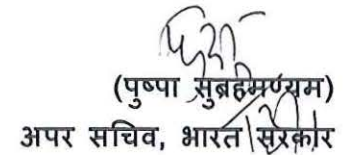 (पुष्पा सुब्रहमण्यम)
अपर सचिव, भारत सरकार